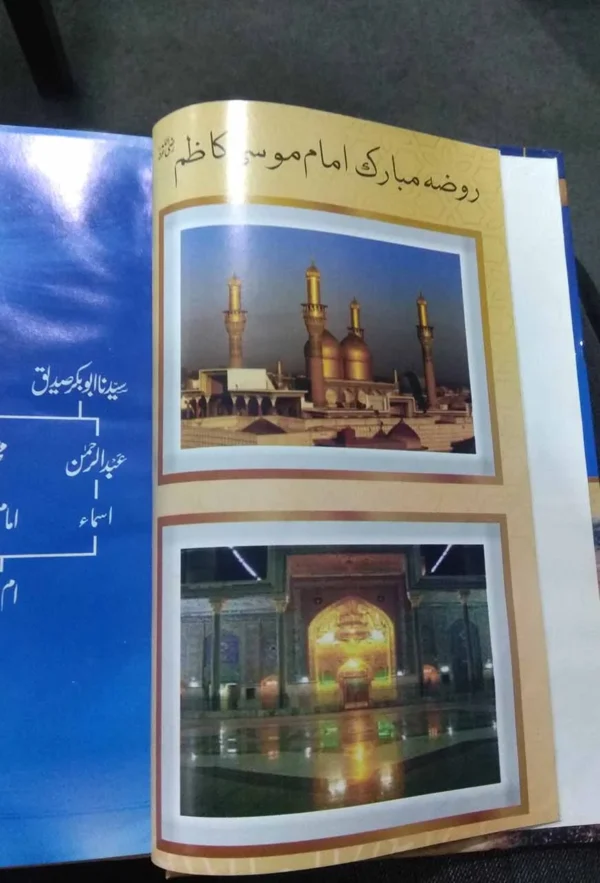 روضہ مبارک امام موسیٰ کاظم
سیّدنا ابوبکر صدیق
عبدالرحمٰن
اسماء
امام
ام